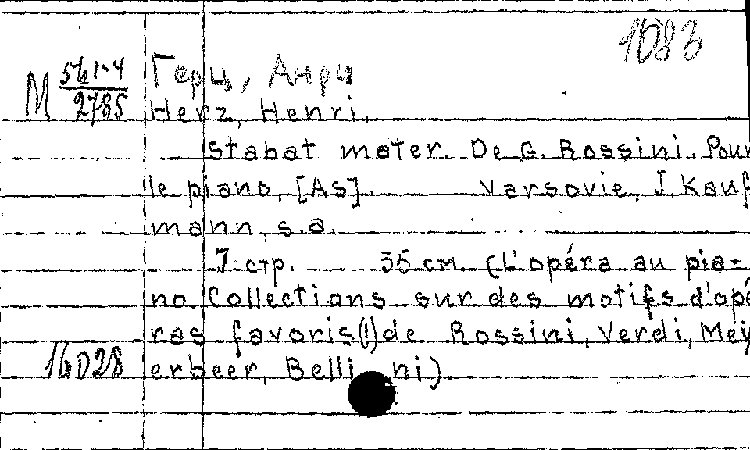 1083
M 561-4/2785
Герц, Анри
Herz, Henri.
Stabat mater. De G. Rossini. Pour
le piano, [As]. Varsovie, J. Kauf
mann, s.a.
7 стр. 35 см. (L'opéra au pia-
no Collections sur des motifs d'opé
ras favoris(!) de Rossini, Verdi, Mey
erbeer, Belli ni).
16028